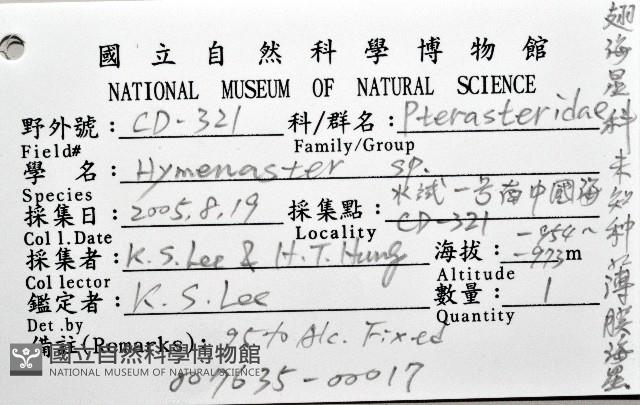 國立自然科學博物館
NATIONAL MUSEUM OF NATURAL SCIENCE
野外號：CD-321 科/群名：Pterasteridae
Field# Family/Group
學 名：Hymenaster sp.
Species
採集日：2005.8.19 採集點：水試一号南中國海 CD-321
Coll.Date Locality
採集者：K.S.Lee & H.T.Hung 海拔：-854~-973m
Collector Altitude
鑑定者：K.S.Lee 數量：1
Det.by Quantity
備註(Remarks)：95% Alc. Fixed
007635-00017
翅海星科未知种 薄膜海星
國立自然科學博物館
NATIONAL MUSEUM OF NATURAL SCIENCE